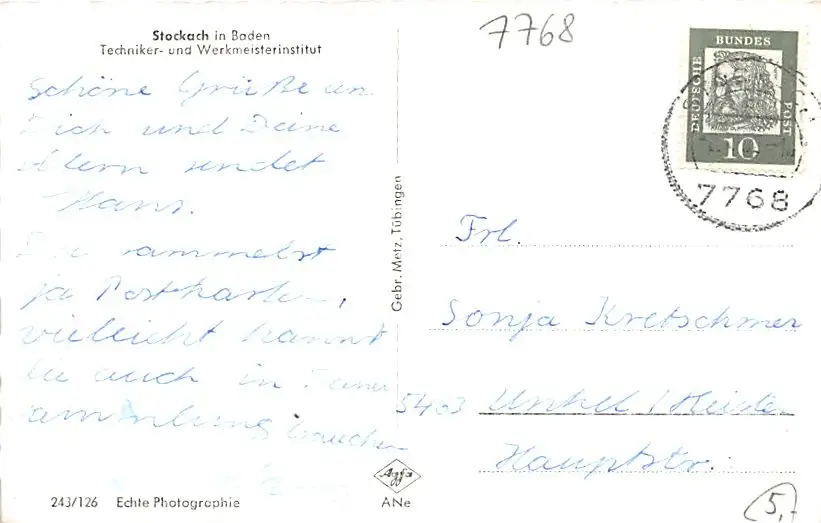 Stockach in Baden
Techniker- und Werkmeisterinstitut
7768
DEUTSCHE
BUNDES
POST
10
7768
Schöne Grüße an
Dich und Deine
Eltern sendet
Hans.
Du sammelst
ja Postkarten,
vielleicht kannst
Du auch in Deiner
Sammlung brauchen
Gebr. Metz, Tübingen
Frl.
Sonja Kretschmer
5463 Unkel /
Hauptstr.
243/126 Echte Photographie
Agfa
ANe
5,-